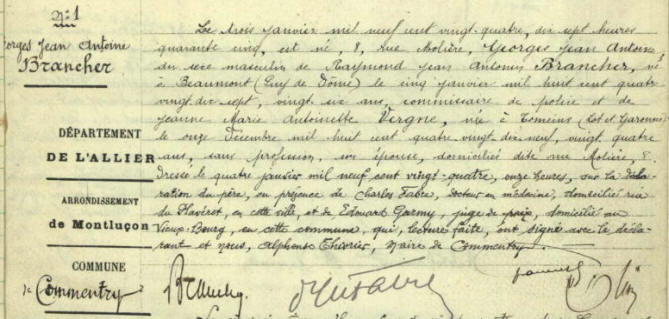 N° 1
Georges Jean Antoine
Brancher
DÉPARTEMENT
DE L'ALLIER
ARRONDISSEMENT
de Montluçon
COMMUNE
de Commentry
Le trois janvier mil neuf cent vingt-quatre, dix sept heures
quarante cinq, est né, 8, rue Molière, Georges Jean Antoine
du sexe masculin de Raymond Jean Antonin Brancher, né
à Beaumont (Puy de Dôme) le cinq janvier mil huit cent quatre
vingt dix sept, vingt six ans, commissaire de police et de
Jeanne Marie Antoinette Vergne, née à Tonneins (Lot et Garonne)
le onze Décembre mil huit cent quatre vingt dix neuf, vingt quatre
ans, sans profession, son épouse, domiciliés dite rue Molière, 8.
Dressé le quatre janvier mil neuf cent vingt-quatre, onze heures, sur la décla-
ration du père, en présence de Charles Fabre, docteur en médecine, domicilié rue
du , en cette ville, et de Edouard , juge de paix, domicilié au
Vieux-Bourg, en cette commune, qui, lecture faite, ont signé avec le décla-
rant et nous, Alphonse , Maire de Commentry.
Brancher